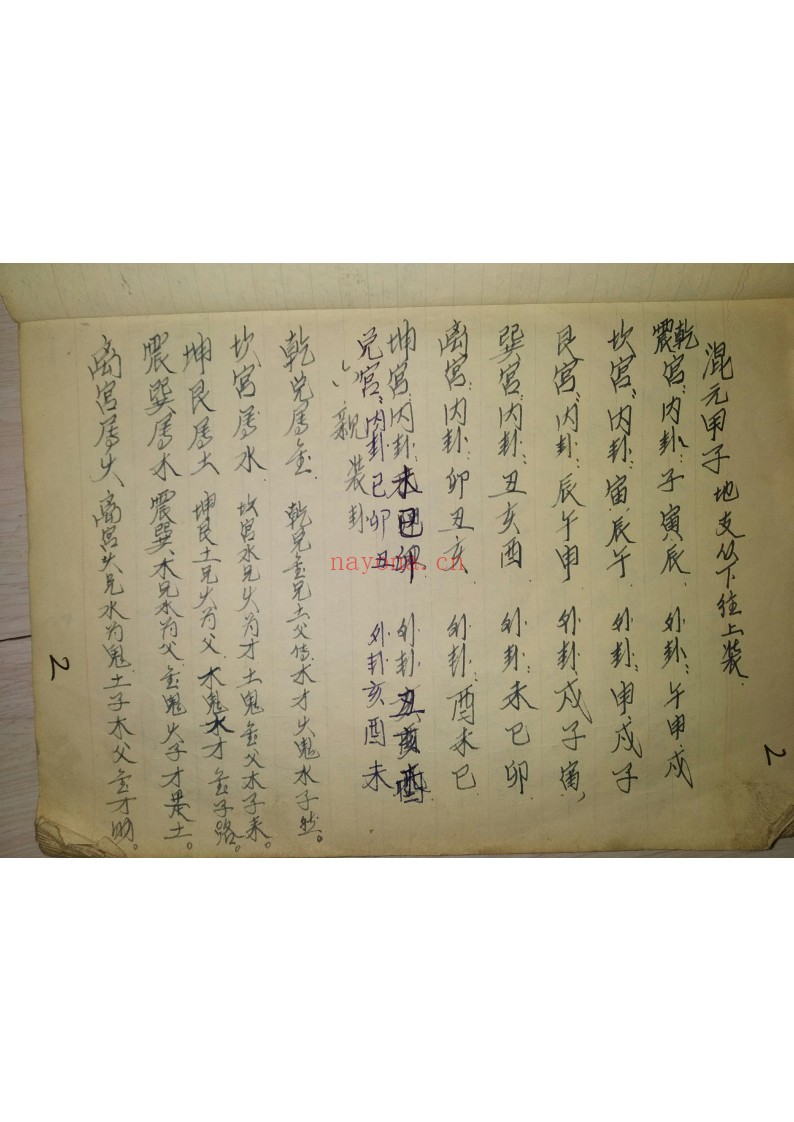 混元甲子 地支从下往上装
乾震宫:内卦:子寅辰 外卦:午申戌
坎宫:内卦:寅辰午 外卦:申戌子
艮宫:内卦:辰午申 外卦:戌子寅,
巽宫:内卦:丑亥酉 外卦:未巳卯
离宫:内卦:卯丑亥 外卦:酉未巳
坤宫:内卦:未巳卯 外卦:丑亥酉
兑宫:内卦巳卯丑 外卦亥酉未
六亲装卦
乾兑属金 乾兑金兄土父传木才火鬼水子然。
坎宫属水 坎宫水兄火为才土鬼金父木子来。
坤艮属土 坤艮土兄火为父 木鬼水才金子路。
震巽属木 震巽木兄水为父金鬼火子才是土。
离宫属火 离宫火兄水为鬼土子木父金才助。
2
2
nayona.cn